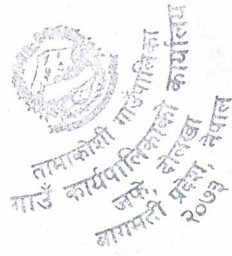 तामाकोशी गाउँपालिका
गाउँ कार्यपालिकाको कार्यालय
जफे, दोलखा
बागमती प्रदेश, नेपाल
२०७३